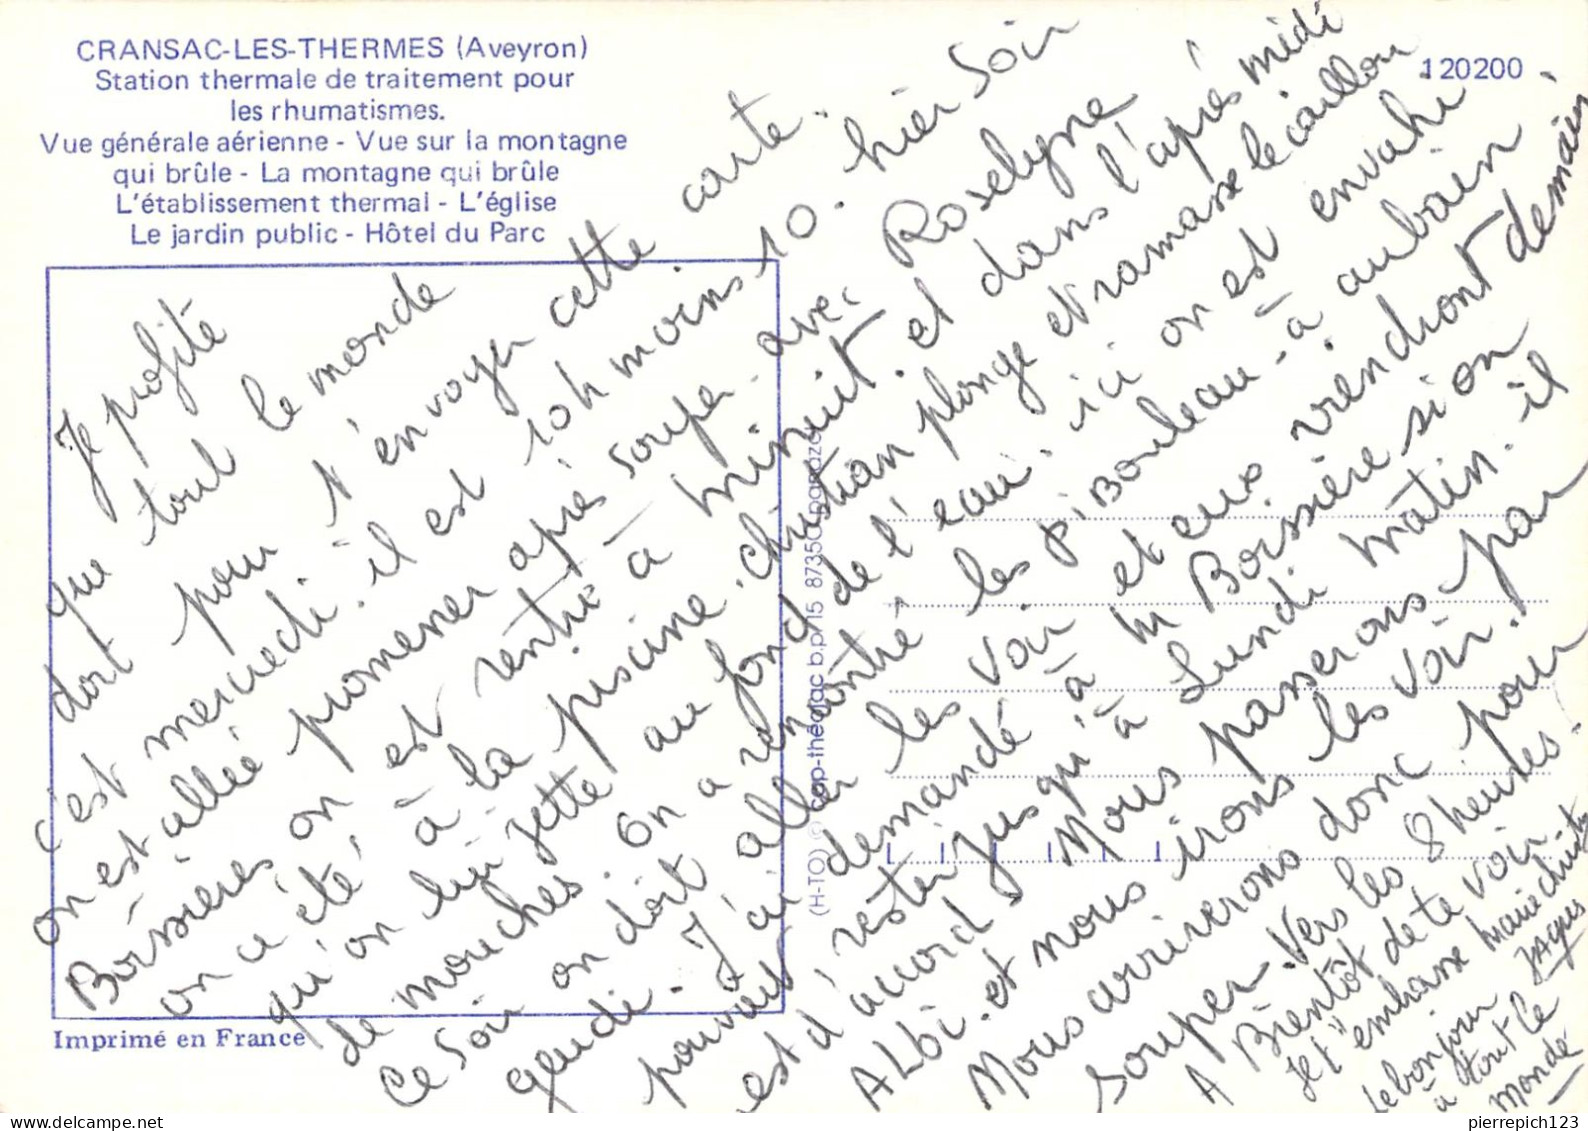 CRANSAC-LES-THERMES (Aveyron)
Station thermale de traitement pour
les rhumatismes.
Vue générale aérienne - Vue sur la montagne
qui brûle - La montagne qui brûle
L'établissement thermal - L'église
Le jardin public - Hôtel du Parc
120200
Je profite
que tout le monde
dort pour t'envoyer cette carte.
c'est mercredi. il est 10h moins 10. hier soir
on est allée promener après souper. avec Roselyne
Boissières on est rentré à minuit. et dans l'après midi
on a été à la piscine. christian plonge et ramasse le caillou
qu'on lui jette au fond de l'eau. ici on est envahi
de mouches. on a rencontré les piBouleau - à aubain.
Ce soir on doit aller les voir. et eux viendront demain
geudi. J'ai demandé à M Boissière si on
pouvait rester jusqu'à Lundi matin. il
est d'accord Nous passerons par
ALbi. et nous irons les voir.
Nous arriverons donc pour
souper. Vers les 8 heures.
A Bientôt de te voir.
Je t'embrasse Marie christ
le bonjour Jacques
à tout le
monde
Imprimé en France
(H-TO) © cap-théojac b.p. 15 87350 panazol
pierrepich123